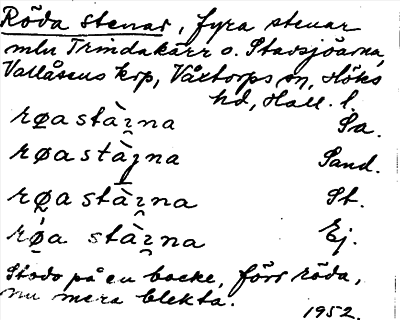 Röda stenar, fyra stenar
mln Trindakärr o. Stavsjöarna,
Vallåsens krp, Våxtorps sn, Höks
hd, Hall. l.
røastàrna Sa.
røastàrna Sand.
røastàrna St.
røa stàrna Ej.
Stodo på en backe, förr röda,
nu mera blekta.
1952.